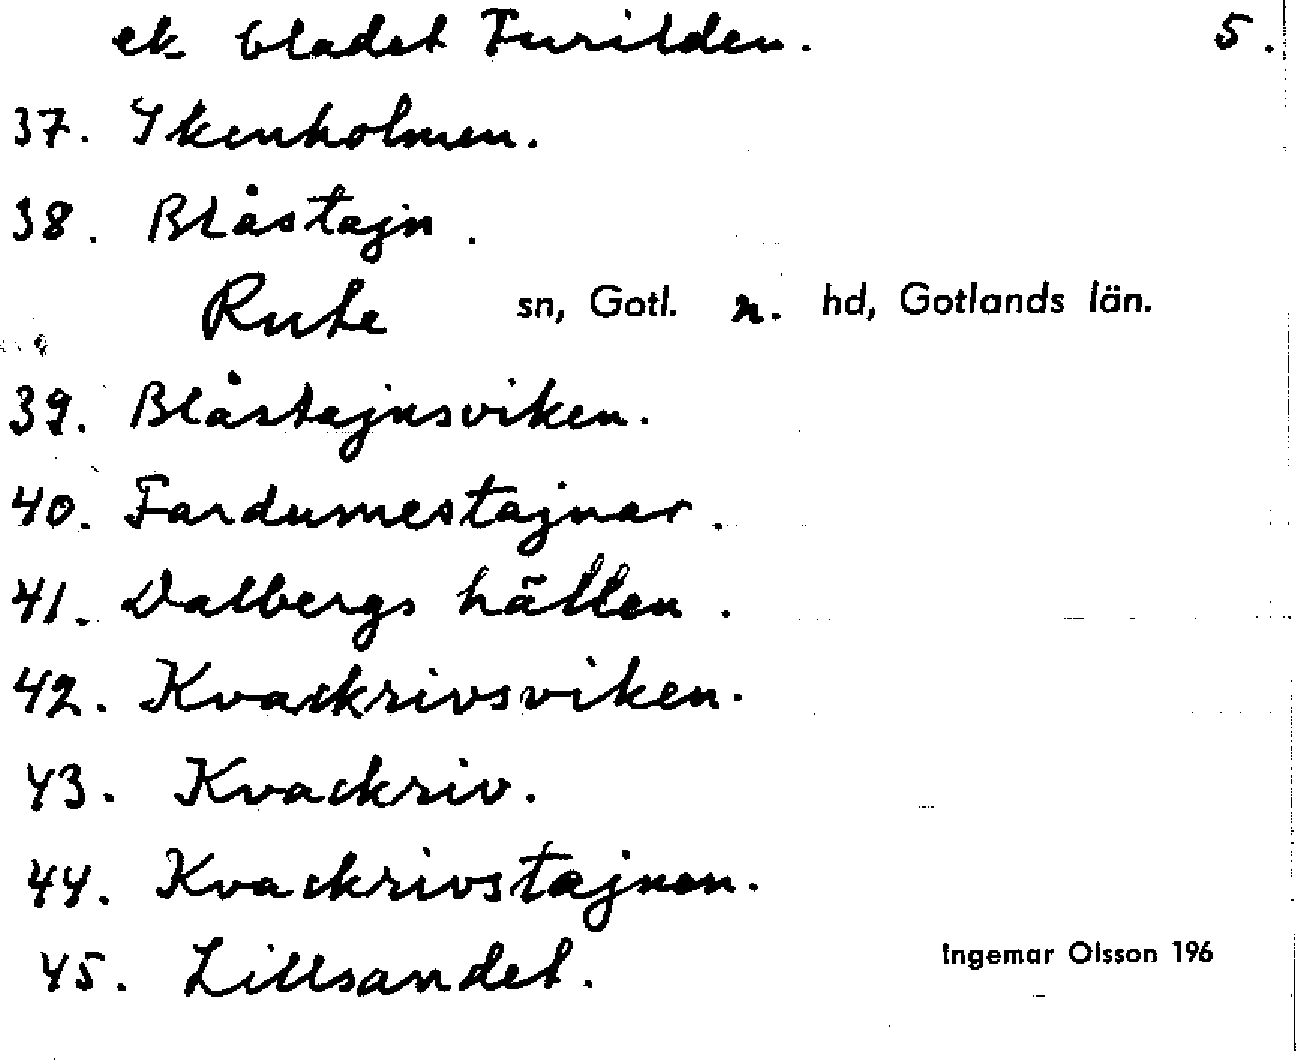 ek bladet Furilden. 5.
37. Ykenholmen.
38. Blåstajn.
Rute sn, Gotl. n. hd, Gotlands län.
39. Blåstajnsviken.
40. Fardumestajnar.
41. Dalbergs hällen.
42. Kvackrivsviken.
43. Kvackriv.
44. Kvackrivstajnen.
45. Lillsandet.
Ingemar Olsson 196